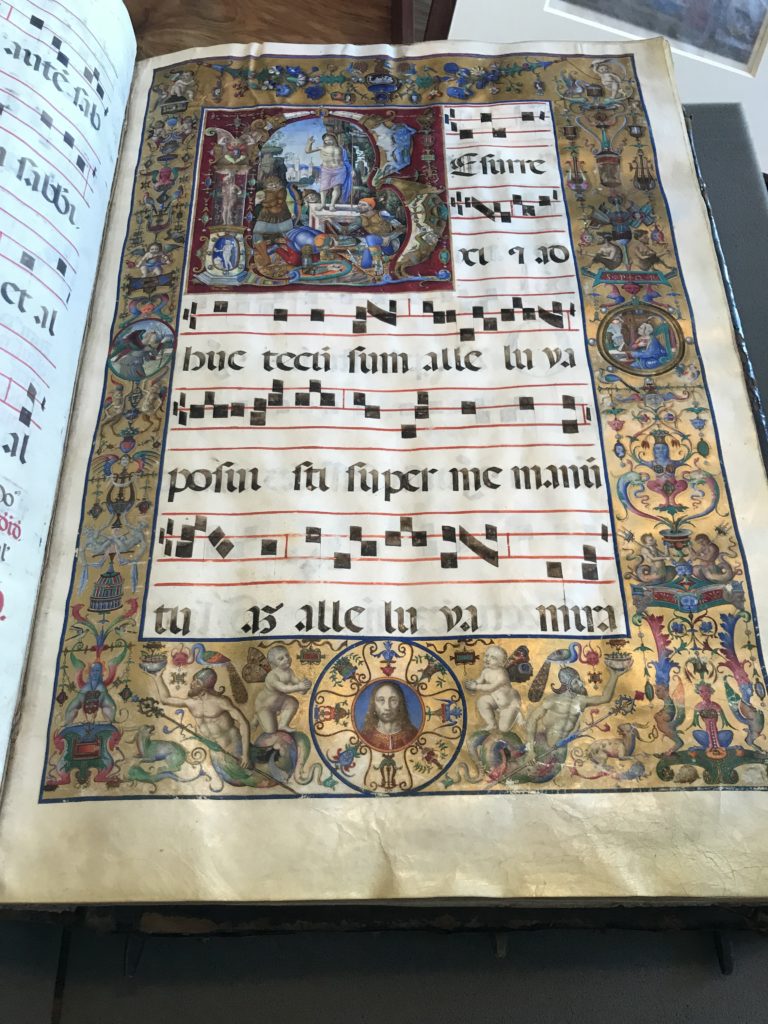 sab
sabbi.
et al
al
REsurre
xi ⁊ ad
huc tecū sum alle lu ya
posui sti super me manū
tu aʒ alle lu ya mira